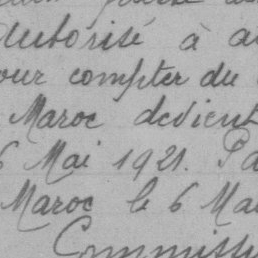 autorisé à
our compter du
Maroc devient
6 Mai 1921. Pa
Maroc le 6 Mai
Commiss